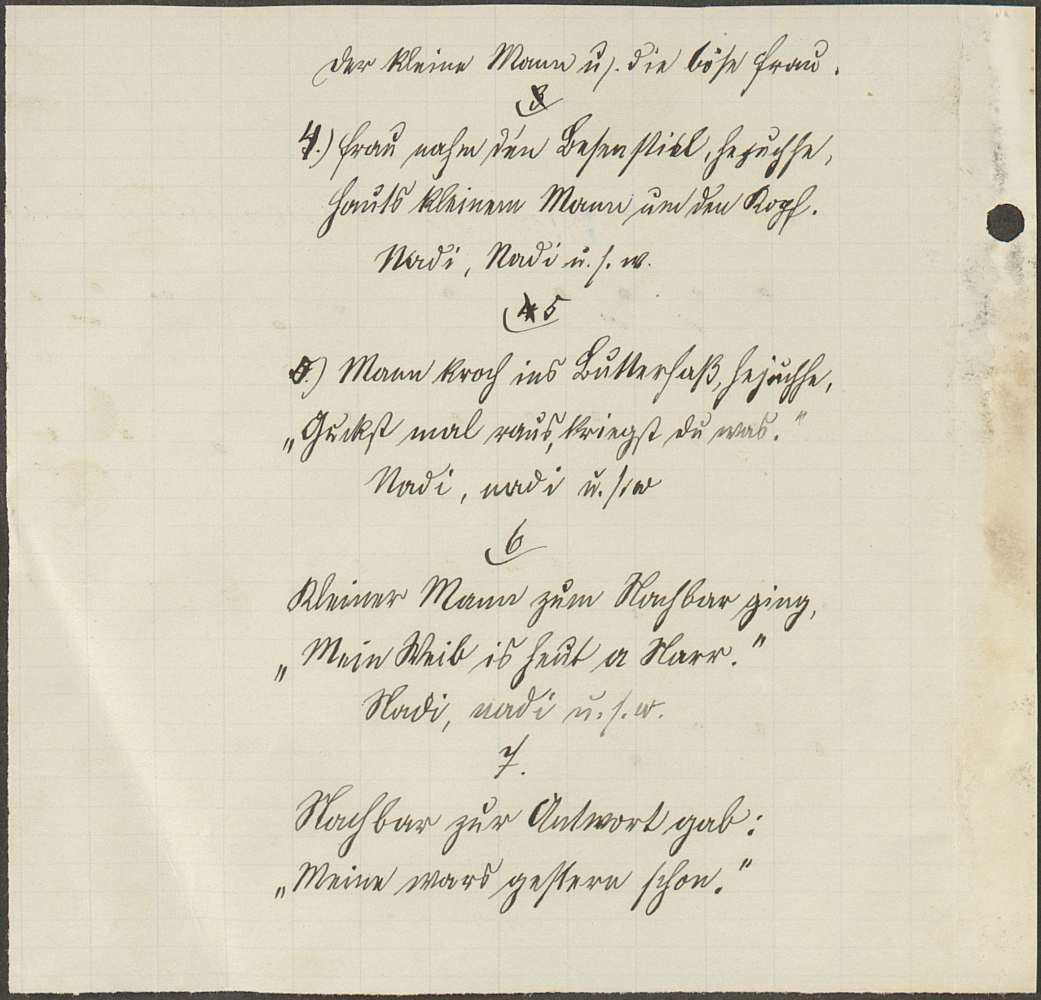 Der kleine Mann u. die böse Frau.
3
4.) Frau nahm den Besenstiel, hejuchhe,
Hauts kleinem Mann um den Kopf.
Nadi, Nadi u. s. w.
4 5
5.) Mann kroch ins Butterfaß, hejuchhe,
„Guckst mal raus, kriegst du was."
Nadi, nadi u. s. w
6
Kleiner Mann zum Nachbar ging,
„Mein Weib is heut a Narr."
Nadi, nadi u. s. w.
7.
Nachbar zur Antwort gab:
„Meine wars gestern schon."